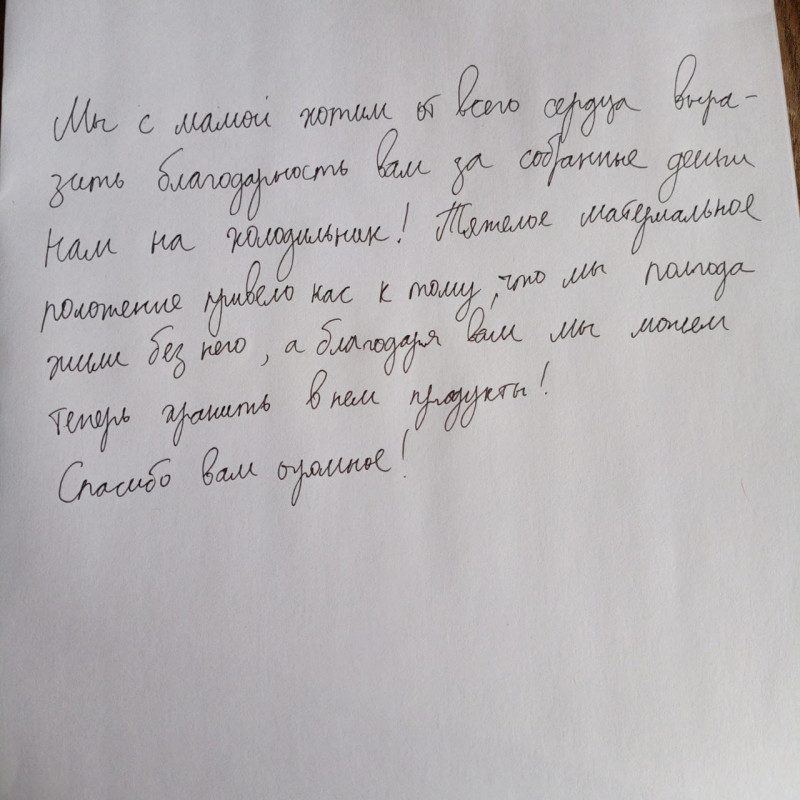 Мы с мамой хотим от всего сердца выра-
зить благодарность вам за собранные деньги
нам на холодильник! Тяжелое материальное
положение привело нас к тому, что мы полгода
жили без него, а благодаря вам мы можем
теперь хранить в нем продукты!
Спасибо вам огромное!